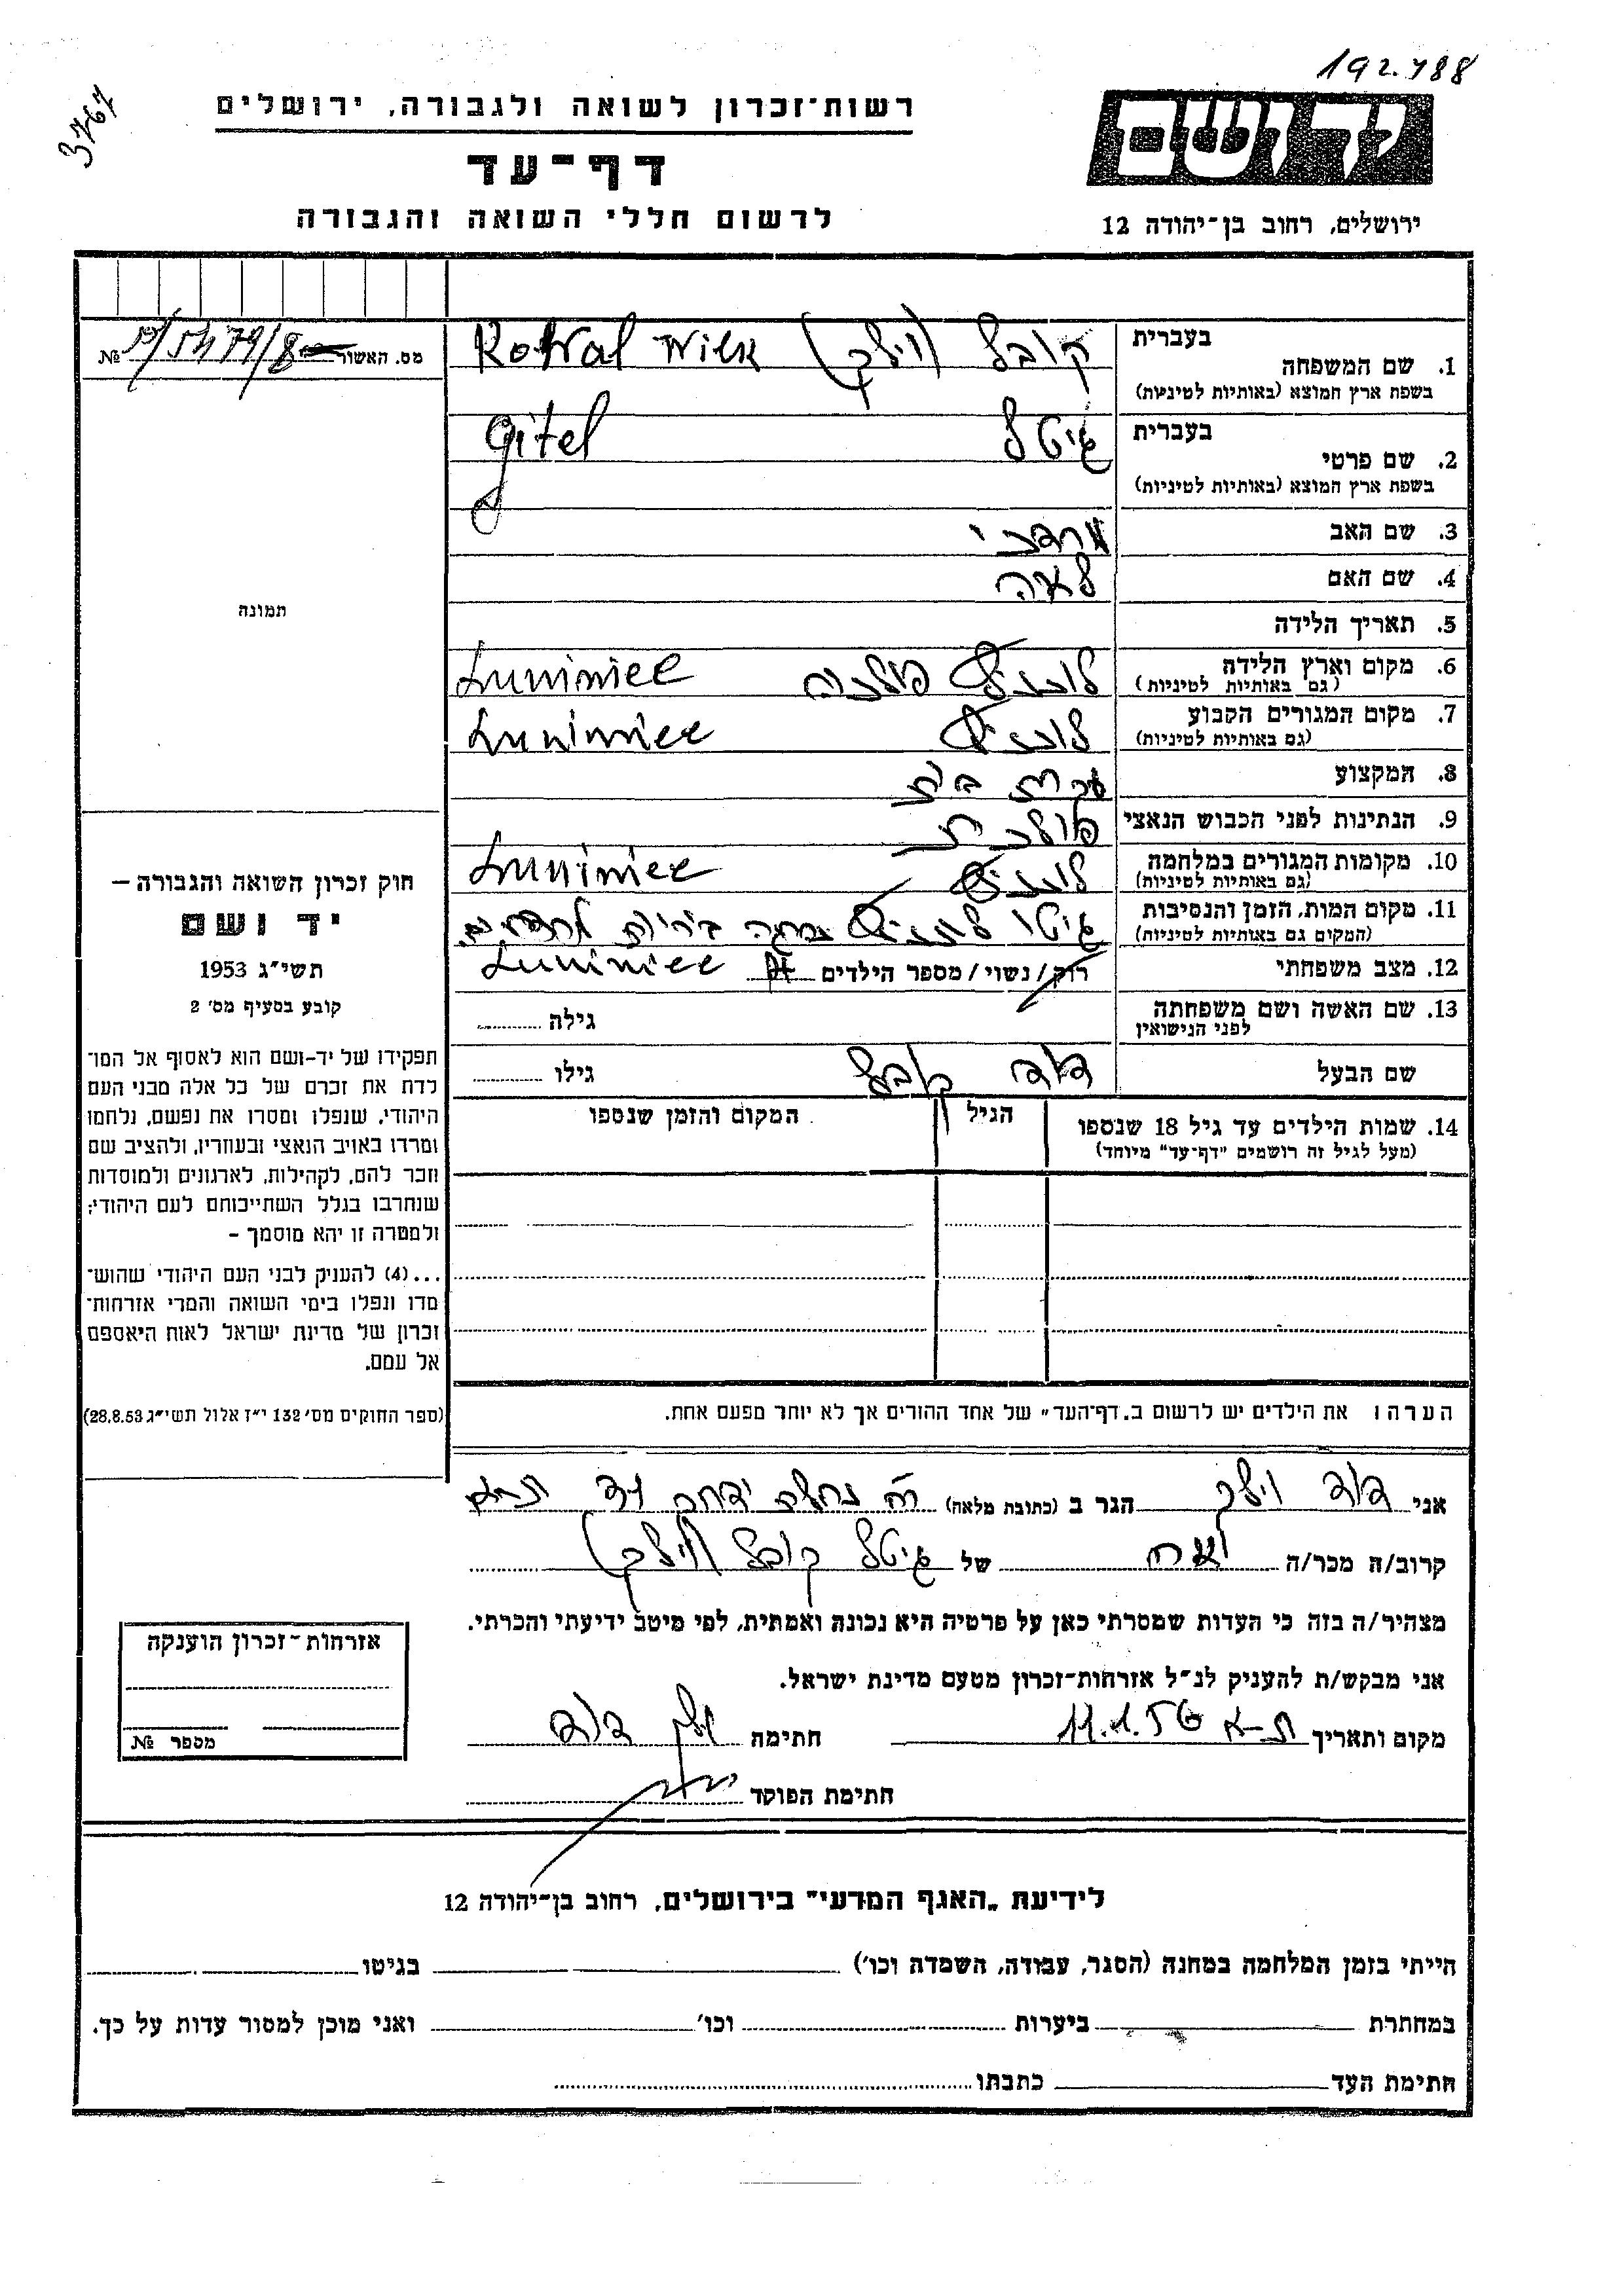 192.788
3767
רשות־זכרון לשואה ולגבורה, ירושלים
דף־עד
לרשום חללי השואה והגבורה
יד ושם
ירושלים, רחוב בן־יהודה 12
מס. האשור №
1. שם המשפחה בעברית קובל (וילק) Kowal Wilk
בשפת ארץ המוצא (באותיות לטיניות)
2. שם פרטי בעברית גיטל Gitel
בשפת ארץ המוצא (באותיות לטיניות)
3. שם האב מרדכי
4. שם האם לאה
5. תאריך הלידה
6. מקום וארץ הלידה לונניץ פולניה Luniniec
(גם באותיות לטיניות)
7. מקום המגורים הקבוע לונניץ Luniniec
(גם באותיות לטיניות)
8. המקצוע עקרת בית
9. הנתינות לפני הכבוש הנאצי פולנית
10. מקומות המגורים במלחמה לונניץ Luniniec
(גם באותיות לטיניות)
11. מקום המות, הזמן והנסיבות גיטו לונניץ
(המקום גם באותיות לטיניות)
12. מצב משפחתי רוק/נשוי/מספר הילדים Luniniec
13. שם האשה ושם משפחתה לפני הנישואין גילה
שם הבעל דוד קובל גילו
14. שמות הילדים עד גיל 18 שנספו הגיל המקום והזמן שנספו
(מעל לגיל זה רושמים "דף־עד" מיוחד)
תמונה
חוק זכרון השואה והגבורה —
יד ושם
תשי״ג 1953
קובע בסעיף מס׳ 2
תפקידו של יד־ושם הוא לאסוף אל המו־
לדת את זכרם של כל אלה מבני העם
היהודי, שנפלו ומסרו את נפשם, נלחמו
ומרדו באויב הנאצי ובעוזריו, ולהציב שם
וזכר להם, לקהילות, לארגונים ולמוסדות
שנחרבו בגלל השתייכותם לעם היהודי;
ולמטרה זו יהא מוסמך –
...(4) להעניק לבני העם היהודי שהוש־
מדו ונפלו בימי השואה והמרי אזרחות־
זכרון של מדינת ישראל לאות היאספם
אל עמם.
(ספר החוקים מס׳ 132 י״ז אלול תשי״ג 28.8.53)
הערה: את הילדים יש לרשום ב„דף־העד״ של אחד ההורים אך לא יותר מפעם אחת.
אני דוד וילק הגר ב (כתובת מלאה)
קרוב/ה מכר/ה אח של גיטל קובל (וילק)
מצהיר/ה בזה כי העדות שמסרתי כאן על פרטיה היא נכונה ואמתית, לפי מיטב ידיעתי והכרתי.
אני מבקש/ת להעניק לנ״ל אזרחות־זכרון מטעם מדינת ישראל.
מקום ותאריך ת-א 11.1.56 חתימה וילק דוד
חתימת הפוקד
אזרחות־זכרון הוענקה
מספר №
לידיעת „האגף המדעי״ בירושלים, רחוב בן־יהודה 12
הייתי בזמן המלחמה במחנה (הסגר, עבודה, השמדה וכו׳) בגיטו
במחתרת ביערות וכו׳ ואני מוכן למסור עדות על כך.
חתימת העד כתבתו